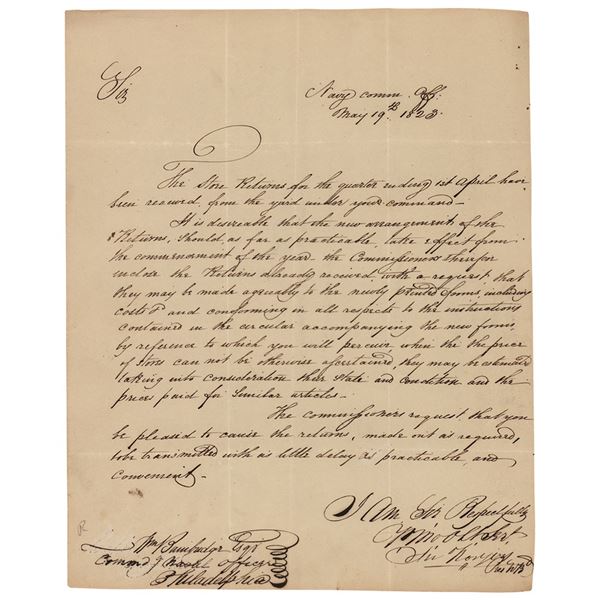 Sir
Navy comm. Off:
May 19th 1823.
The Store Returns for the quarter ending 1st April have
been received, from the yard under your command—
It is desireable that the new arrangement of the
Returns, should, as far as practicable, take effect from
the commencement of the year— the Commissioners therefor
inclose the Returns already received, with a request, that
they may be made agreeably to the newly printed forms, including
costs & and conforming in all respects to the instructions
contained in the circular accompanying the new forms,
by reference to which you will perceive when the the price
of Stores can not be otherwise ascertained, they may be estimated
taking into consideration their state and condition and the
prices paid for Similar articles—
The commissioners request that you
be pleased to cause the returns, made out as required,
to be transmitted with as little delay as practicable, and
convenient—
I Am Sir Respectfully
Wm Bainbridge Esqr
Commdg Naval officer
Philadelphia